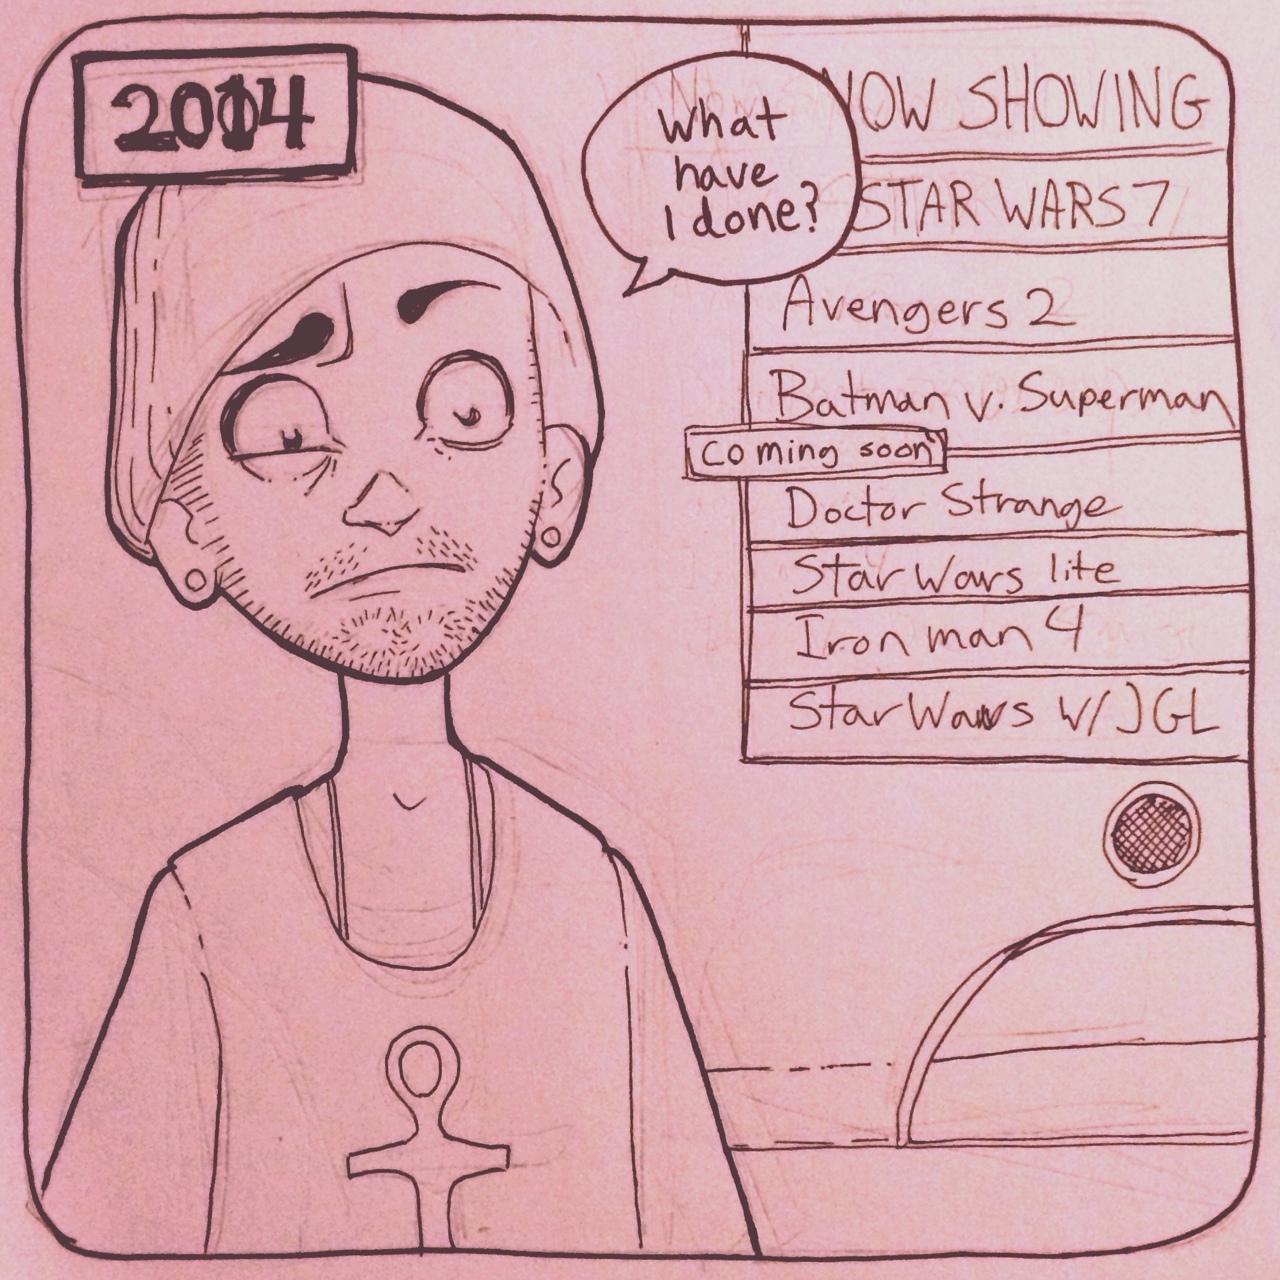 2014
What
have
I done?
NOW SHOWING
STAR WARS 7
Avengers 2
Batman v. Superman
Coming soon
Doctor Strange
Star Wars lite
Iron man 4
Star Wars w/ JGL